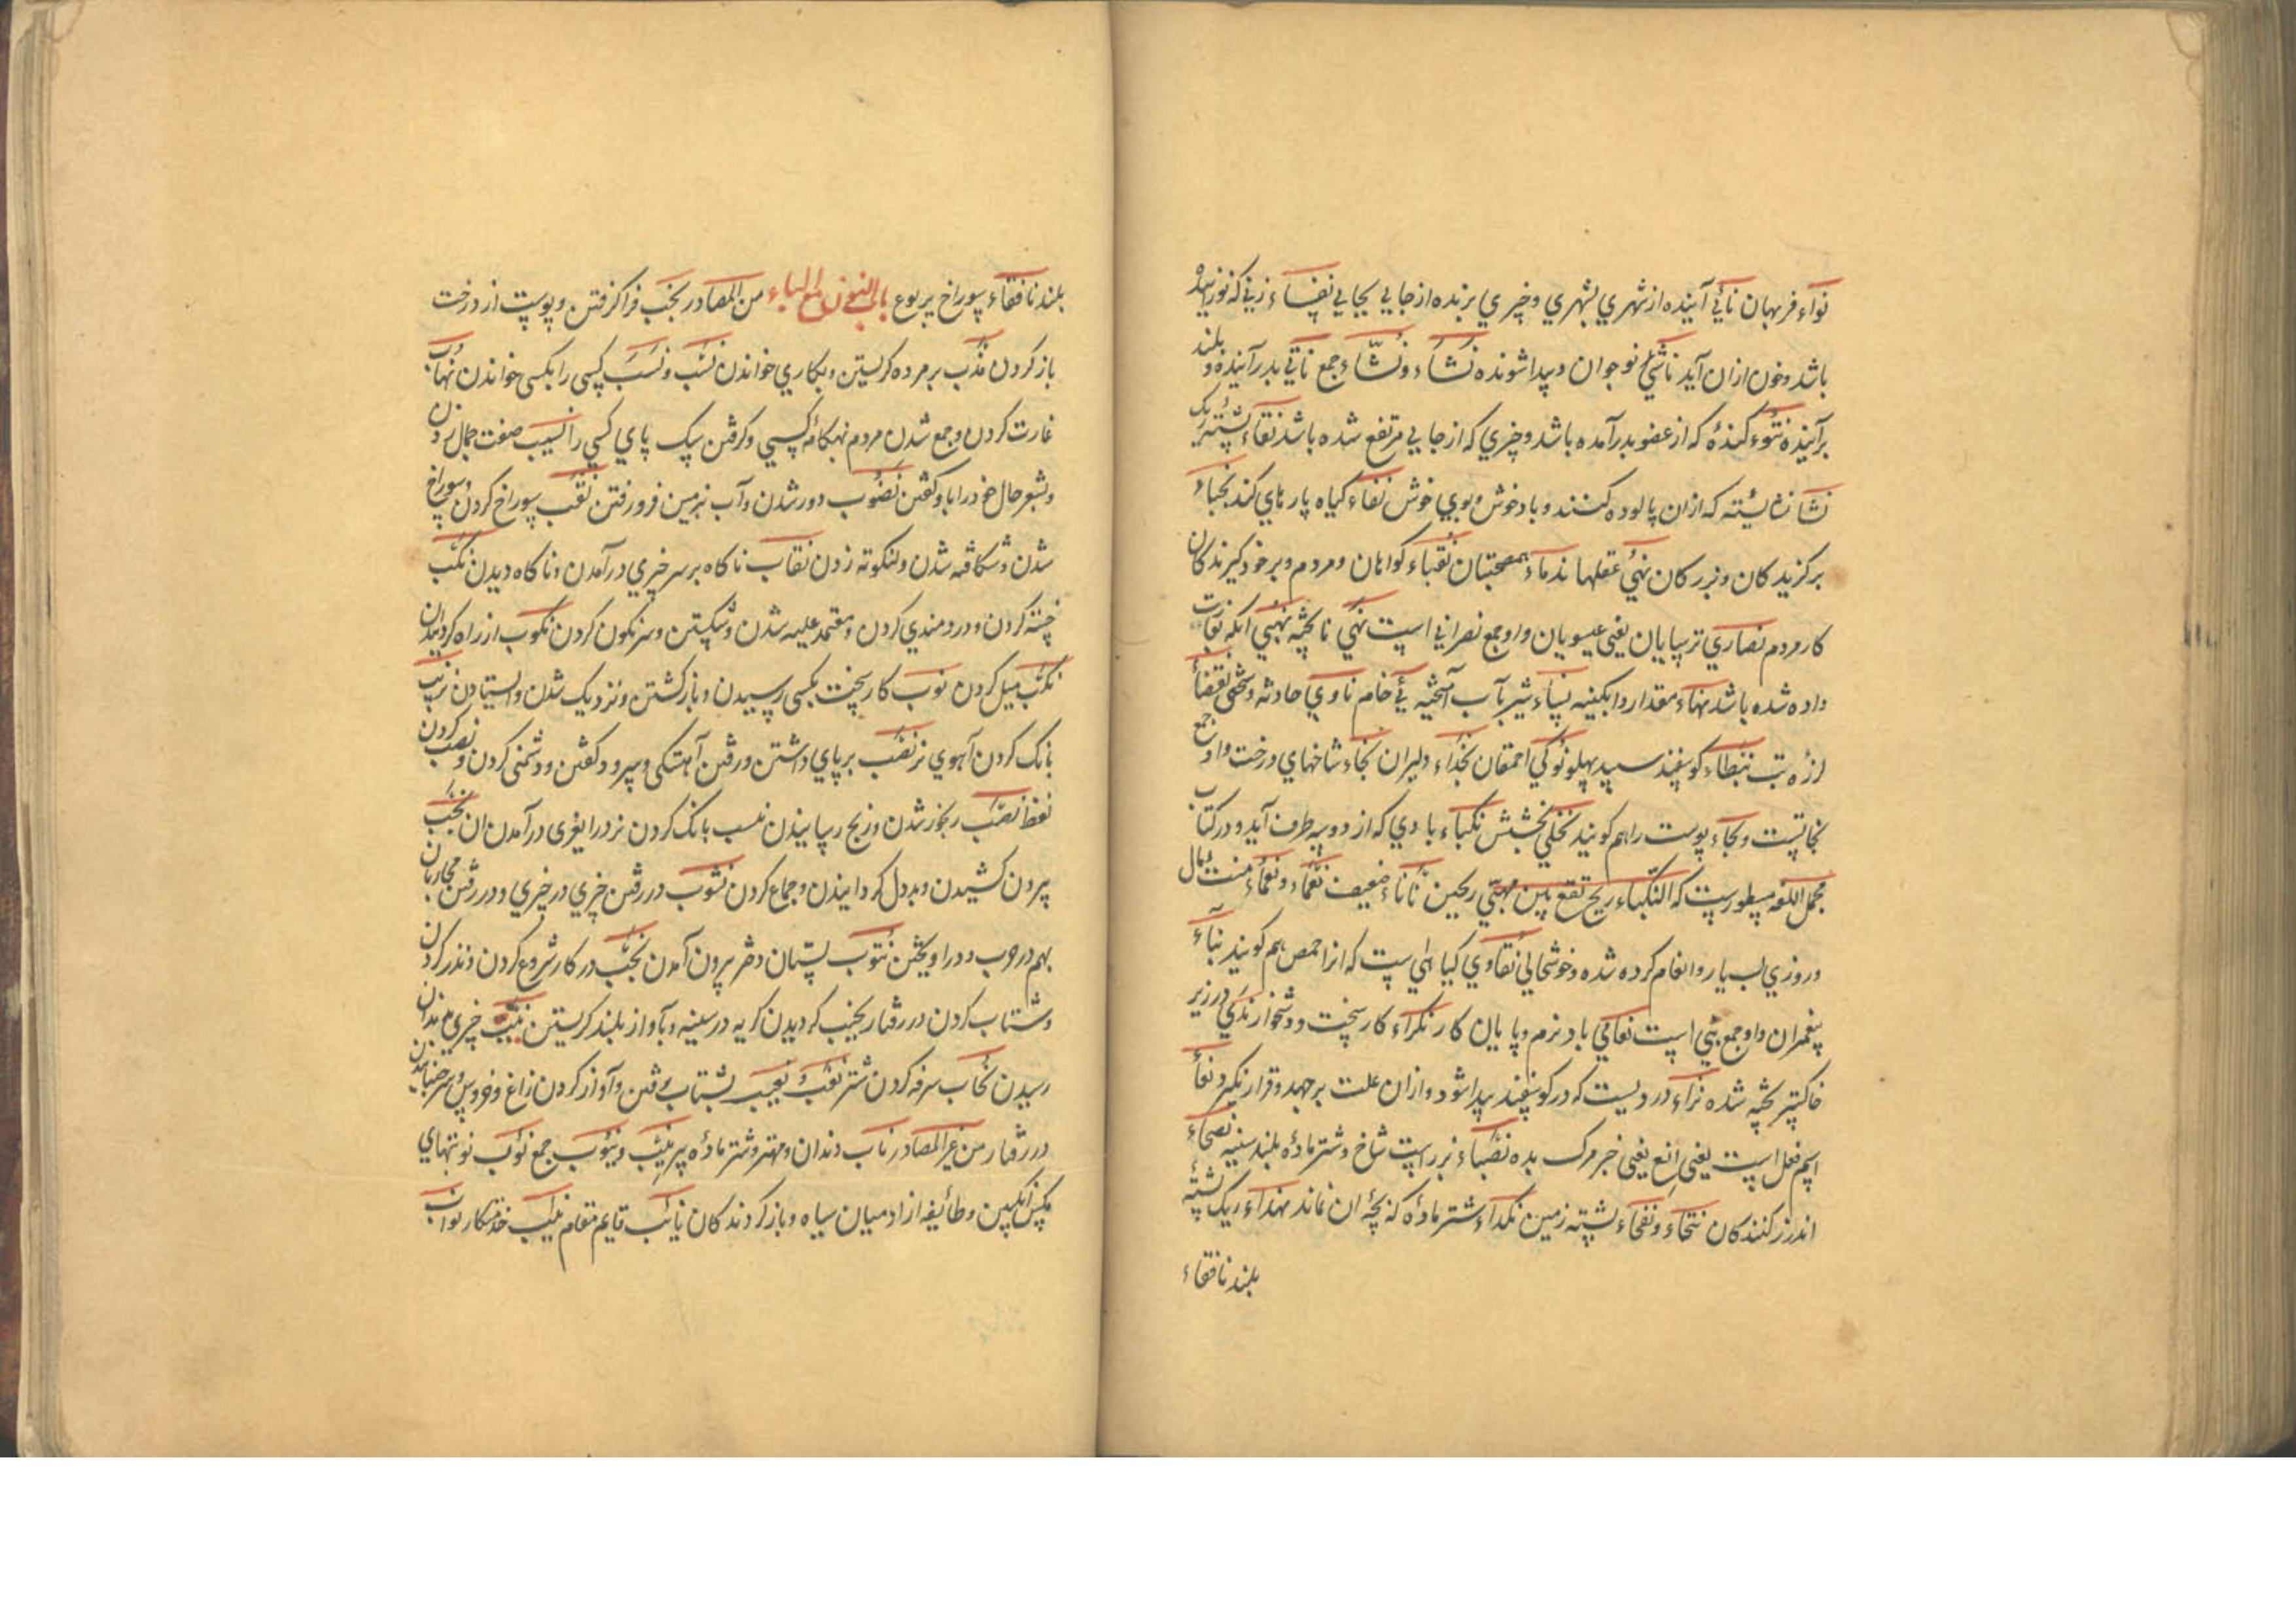 نواء فربهان نائی آینده از شهري بشهري و چیزي برنده از جایي بجایي نفساء زنی که نوزائیده
باشد و خون ازان آید ناشئ نوجوان و پیدا شونده نشاء و نشّاء جمع ناتي بدر آینده و بلند
بر آینده نتوء کندهٔ که از عضو بدر آمده باشد و چیزي که از جایي مرتفع شده باشد نقاء پشتهٔ ریک
نشا نشایسته که ازان پالوده کنند و باد خوش و بوي خوش نفاء کیاه پارهاي کند نجباء
برکزیدکان و بزرکان نهي عقلها ندماء همصحبتان نقباء کواهان و مردم و بر خود کیرندکان
کار مردم نصاري ترسایان یعنی عیسویان و او جمع نصرانی است نهي ناپخته نهیي آنکه
داده شده باشد نهاء مقدار و آبکینه نساء شیر بآب آمیخته نئ خام ناوي حادثه و سختی نفضاء
لرزه تب نبطاء کوسفند سپید پهلو نوکي احمقان نجداء دلیران نجاء شاخهاي درخت و او جمع
نجاتست و نجاء پوست را هم کویند نحلي بخشش نکباء بادي که از دو سه طرف آید و در کتاب
مجمل اللغه مسطورست که النکباء ریح تقع بین مهبّي ریحین نأناء ضعیف نعماء و نعمٰی منت و مال
و روزي بسیار و انعام کرده شده و خوشحالي نقاوي کیاهی است که انرا حمص هم کویند نبآء
پیغمبران و او جمع نبي است نعامي باد نرم و پایان کار نکراء کار سخت و دشخوار ندي در زیر
خاکستر پخته شده نزاء دردیست که در کوسفند پیدا شود و ازان علت برجهد و قرار نکیرد نعاء
اسم فعل است یعنی اِنعَ یعنی خبر مرک بده نصباء بز راست شاخ و شتر مادهٔ بلند سینه نصحاء
اندرز کنندکان نتخاء و نفخاء پشته زمین نکداء شتر مادهٔ که بچهٔ ان نماند نهداء ریک پشته
بلند نافقاء
بلند نافقاء سوراخ یربوع باب النون مع الباء من المصادر نجب فرا کرفتن و پوست از درخت
باز کردن ندب بر مرده کریستن و بکاري خواندن نسب و نسب کسی را بکسی خواندن نهاب
غارت کردن و جمع شدن مردم بهنکامهٔ کسي و کرفتن سک پاي کسي را نسیب صفت جمال زن
و بشعر حال خود را با او کفتن نضوب دور شدن و آب بزمین فرو رفتن نقب سوراخ کردن و سوراخ
شدن و شکافته شدن و لنکوته زدن نقاب ناکاه بر سر چیزي در آمدن و ناکاه دیدن نکب
خسته کردن و دردمندي کردن و معتمد علیه شدن و شکستن و سرنکون کردن نکوب از راه کردیدن
نکب میل کردن نوب کار سخت بکسی رسیدن و باز کشتن و نزدیک شدن و ایستادن نزیب
بانک کردن آهوي نر نصب بر پاي داشتن و رفتن آهستکی و سرود کفتن و دشمنی کردن و نصب کردن
لفظ نصب رنجور شدن و رنج رسانیدن نبیب بانک کردن نر در آمدن ان نخب
بیرون کشیدن و بددل کردانیدن و جماع کردن نشوب در رفتن چیزي در چیزي و در رفتن محاربان
بهم در حرب و در آویختن نتوب پستان دختر بیرون آمدن نحب در کار شروع کردن و نذر کردن
و شتاب کردن در رفتار نحیب کردیدن کریه در سینه و بآواز بلند کریستن نیب چیزي بدندان
رسیدن نحاب سرفه کردن شتر نعب و نعیب بشتاب رفتن و آواز کردن زاغ و خروس و سر جنبانیدن
در رفتار من غیر المصادر ناب دندان و مهتر و شتر مادهٔ پیر نیب و نیوب جمع نوب نوبتهاي
مکس انکبین و طائفهٔ از آدمیان سیاه و باز کردندکان نائب قایم مقام نیب خدمتکار نواب